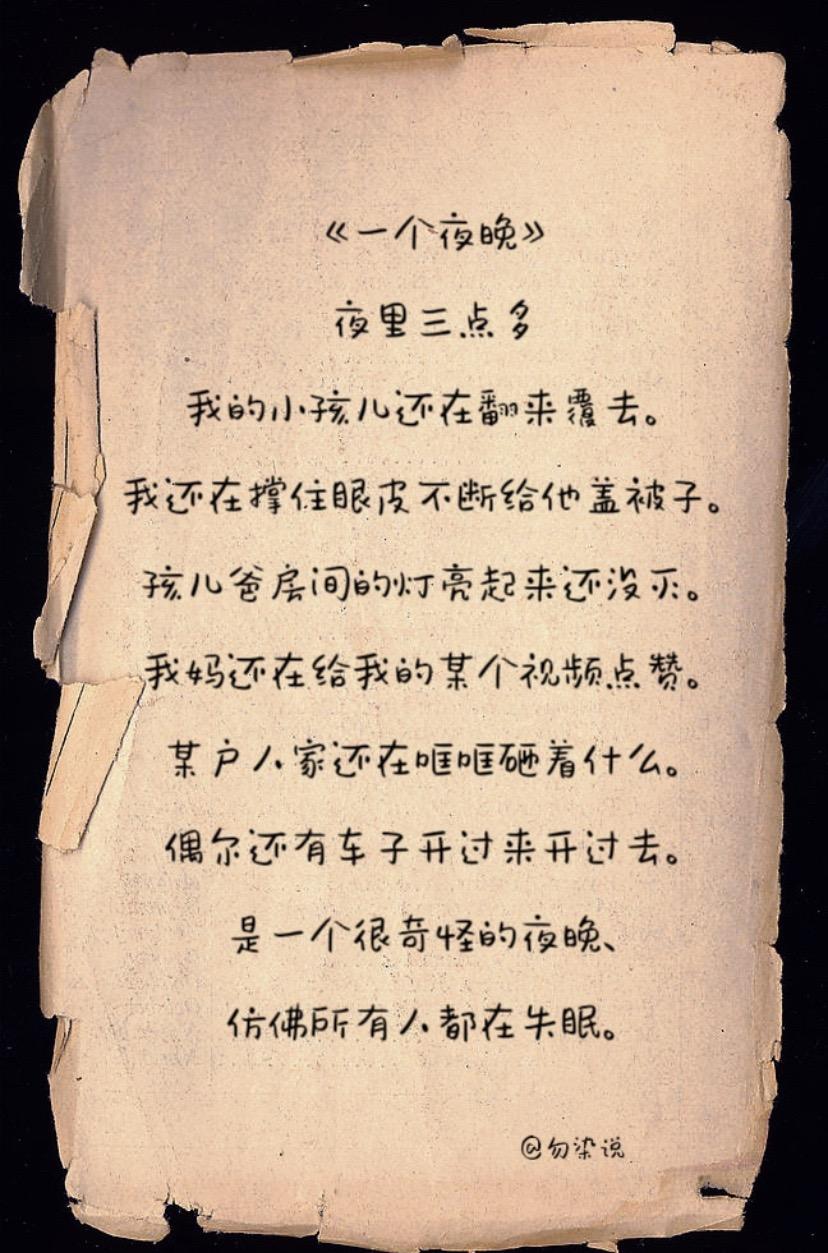 《一个夜晚》
夜里三点多
我的小孩儿还在翻来覆去。
我还在撑住眼皮不断给他盖被子。
孩儿爸房间的灯亮起来还没灭。
我妈还在给我的某个视频点赞。
某户人家还在哐哐砸着什么。
偶尔还有车子开过来开过去。
是一个很奇怪的夜晚、
仿佛所有人都在失眠。
@勿染说